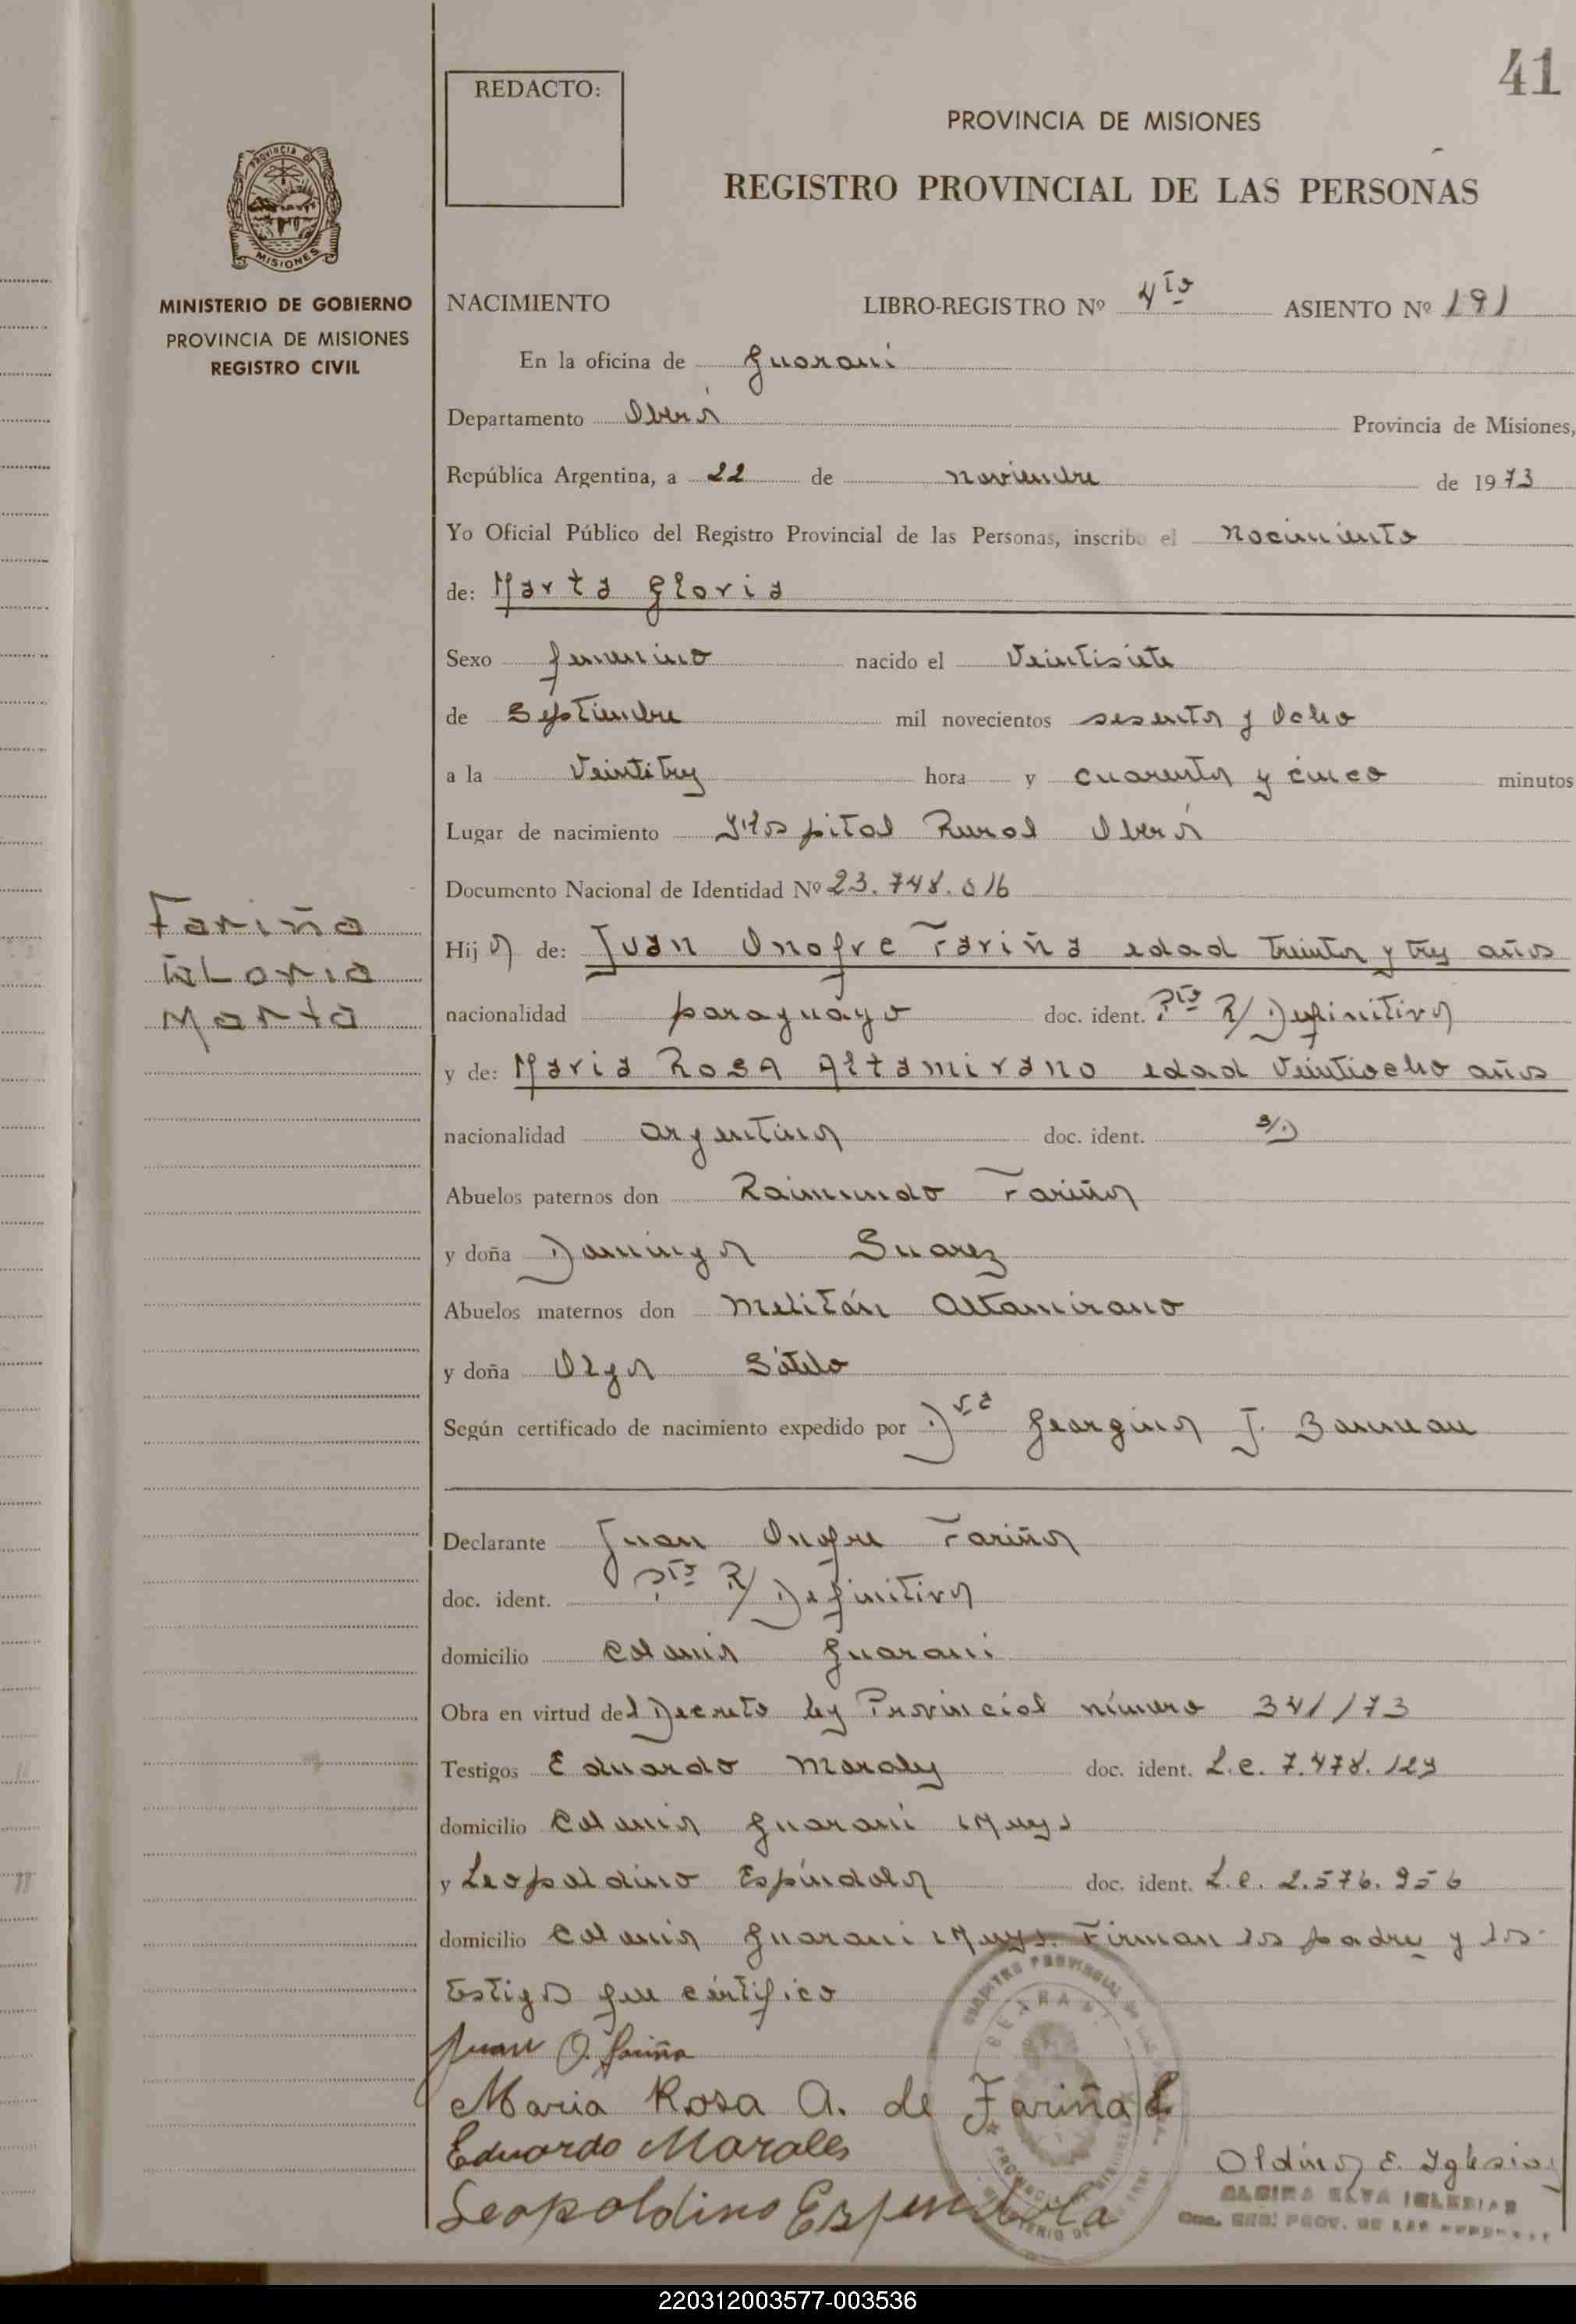 41
REDACTO:
PROVINCIA DE MISIONES
REGISTRO PROVINCIAL DE LAS PERSONAS
PROVINCIA DE
MISIONES
MINISTERIO DE GOBIERNO
PROVINCIA DE MISIONES
REGISTRO CIVIL
NACIMIENTO LIBRO-REGISTRO Nº 4to ASIENTO Nº 191
En la oficina de Guarani
Departamento Oberá Provincia de Misiones,
República Argentina, a 22 de noviembre de 1973
Yo Oficial Público del Registro Provincial de las Personas, inscribo el Nacimiento
de: Marta Gloria
Sexo femenino nacido el Veintisiete
de Septiembre mil novecientos sesenta y Ocho
a la Veintitres hora y cuarenta y cinco minutos
Lugar de nacimiento Hospital Rural Oberá
Documento Nacional de Identidad Nº 23.748.016
Fariña
Gloria
Marta
Hija de: Juan Onofre Fariña edad treinta y tres años
nacionalidad paraguayo doc. ident. Pto R/Definitiva
y de: Maria Rosa Altamirano edad Veintiocho años
nacionalidad argentina doc. ident. s/D
Abuelos paternos don Raimundo Fariña
y doña Dominga Suarez
Abuelos maternos don Melitán Altamirano
y doña Olga Sótelo
Según certificado de nacimiento expedido por Dra Georgina J.
Declarante Juan Onofre Fariña
doc. ident. Pto R/Definitiva
domicilio Colonia Guarani
Obra en virtud del Decreto Ley Provincial número 341/73
Testigos Eduardo Morales doc. ident. L.e. 7.478.129
domicilio Colonia Guarani
y Leopoldino Espíndola doc. ident. L.e. 2.576.956
domicilio Colonia Guarani Firman los padres y los
testigos que cértifico
Juan O. Fariña
Maria Rosa A. de Fariña
Eduardo Morales
Leopoldino Espindola
REGISTRO PROVINCIAL DE LAS
Oldina E. Iglesias
ELVA IGLESIAS
REG. PROV. DE LAS
220312003577-003536